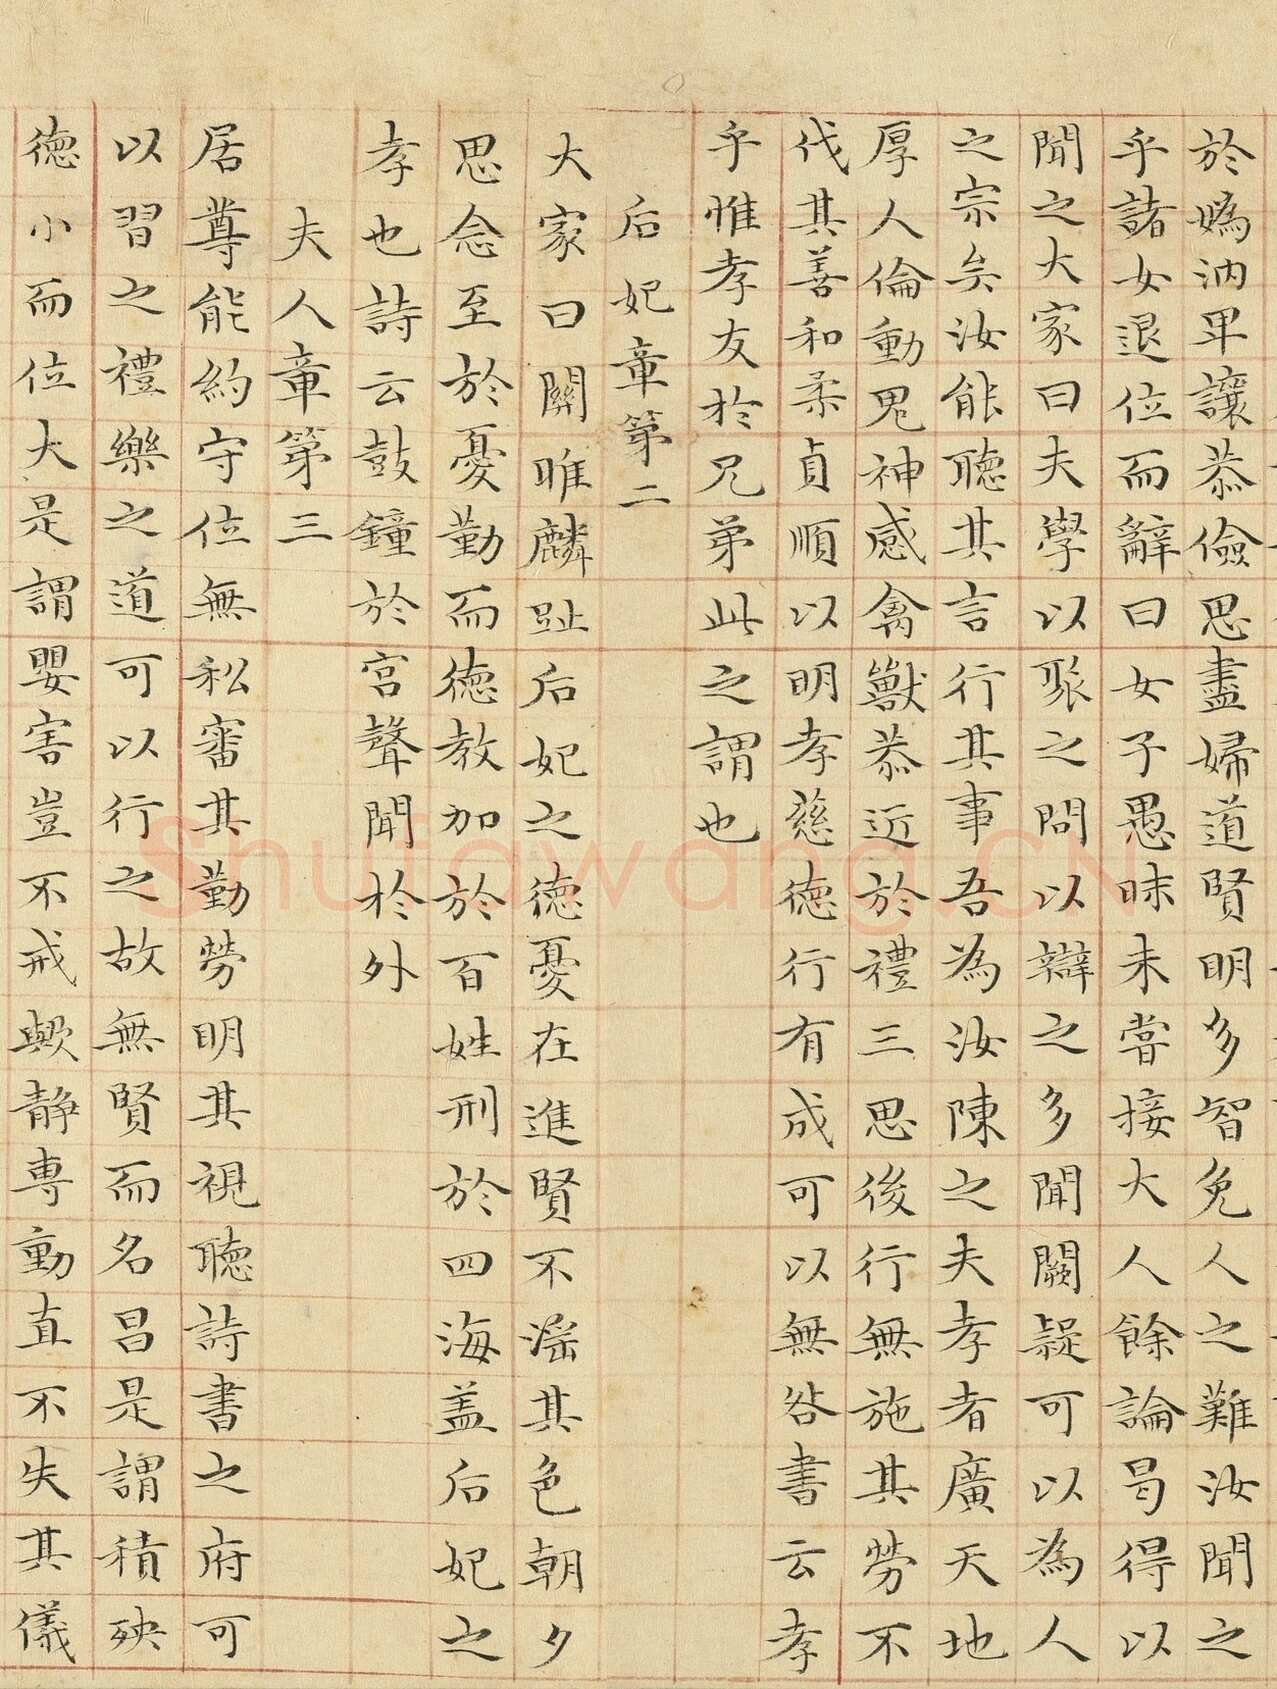 於嬀汭卑讓恭儉思盡婦道賢明多智免人之難汝聞之
乎諸女退位而辭曰女子愚昧未嘗接大人餘論曷得以
聞之大家曰夫學以聚之問以辯之多聞闕疑可以為人
之宗矣汝能聽其言行其事吾為汝陳之夫孝者廣天地
厚人倫動鬼神感禽獸恭近於禮三思後行無施其勞不
伐其善和柔貞順以明孝慈德行有成可以無咎書云孝
乎惟孝友於兄弟此之謂也
后妃章第二
大家曰關雎麟趾后妃之德憂在進賢不滛其色朝夕
思念至於憂勤而德教加於百姓刑於四海盖后妃之
孝也詩云鼓鐘於宮聲聞於外
夫人章第三
居尊能約守位無私審其勤勞明其視聽詩書之府可
以習之禮樂之道可以行之故無賢而名昌是謂積殃
德小而位大是謂嬰害豈不戒歟静専動直不失其儀
Shufawang.CN